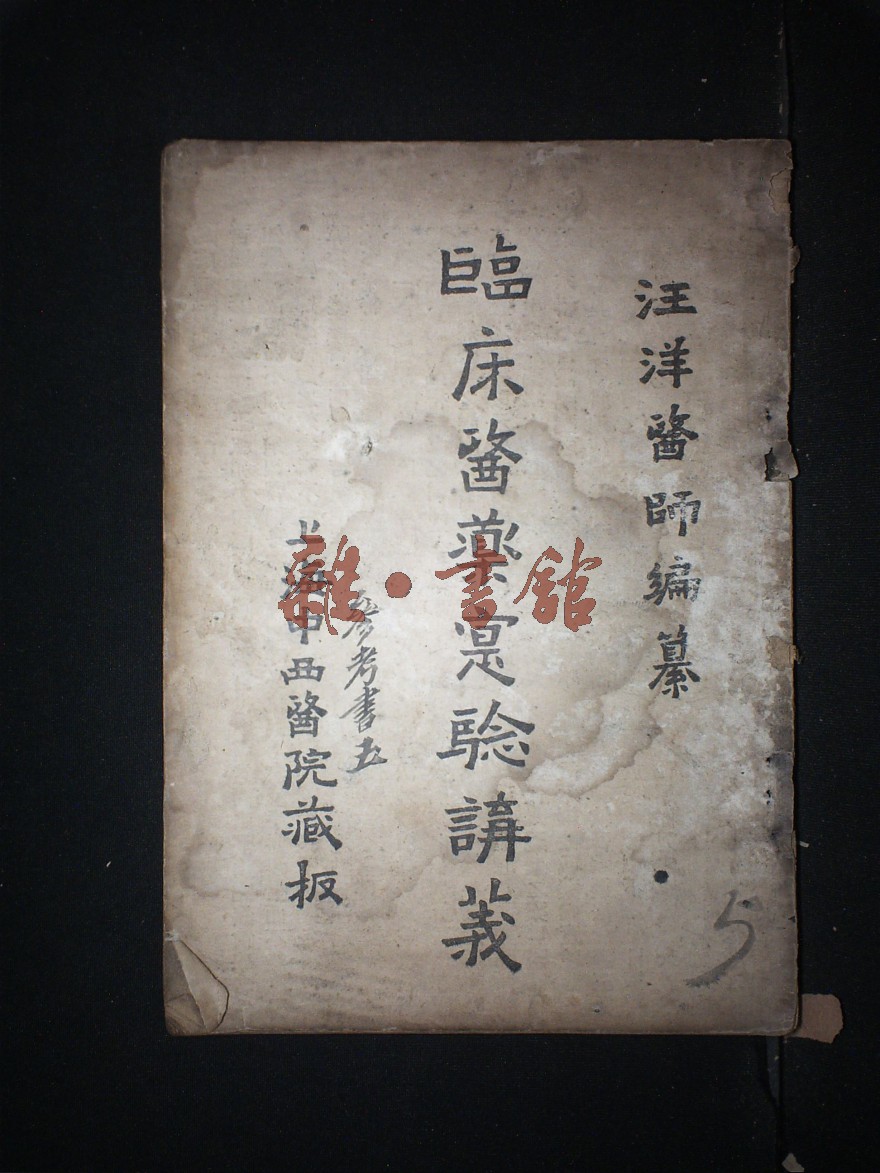 汪洋醫師編纂
臨床醫藥寔騐講義
參考書五
上海中西醫院藏板
5
雜·書館